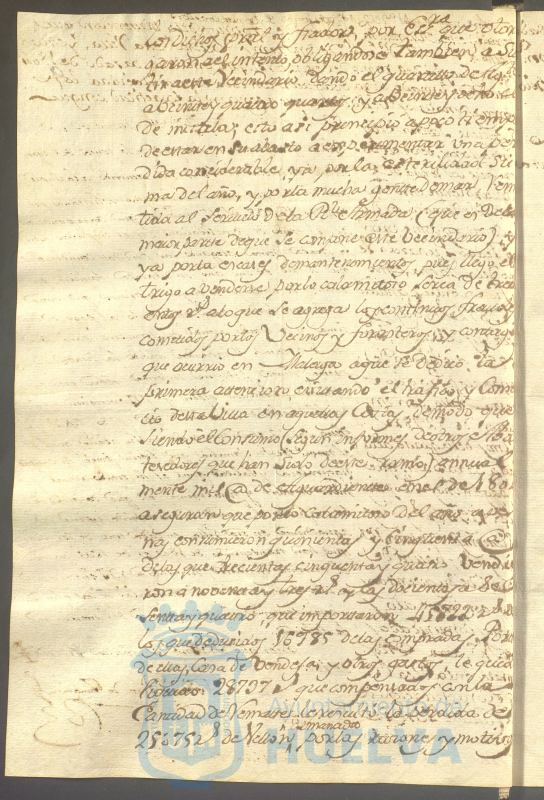 los dichos prâl y fiador, por Esc.ra que otor
garon al intento, obligandose tambien a
a este Vecindario dando el quartillo de
a veinte y quatro quartos, y a veinte y ocho el
de mistela; esto asi principio a poco tiempo
de estar en su abasto a experimentar una per
dida considerable, ya por la esterilidad su
ma del año, y por la mucha gente de mar
tida al servicio de la Rl. Armada (que es de la
maior parte de que se compone este Vecindario) y
ya por la escases de mantenimientos, pues llegó el
trigo a venderse por lo calamitoso serca de
r.s a lo que se agrega los continuos fraudes
cometidos por los Vecinos y forasteros, y contagio
que ocurrio en Malaga a que se dedicó la
primera atencion evitando el trafico, y Comer
cio de esta Villa en aquellas Costas, demodo que
siendo el Consumo (segun informes de otros Abas
tecedores que han sido de este ramo) annual
mente mil @ de aguardiente en el de 180
aseguran que por lo calamitoso del año ape
nas consumieron quinientas y cinquenta @
de las que trecientas cinquenta y quatro vendie
ron a noventa y tres r.s y las docientas
senta y quatro que importaron 45822 r.s de
los que deducidos 16785 de las compradas, Porte
de ellas, Casa de Vendeja, y otros gastos, le queda
liquido 28797 que compensados con la
Cantidad de Remate resulto la perdida de
25675 r.s de Vellon dimanado por las razones y motivos
Ayuntamiento de
HUELVA